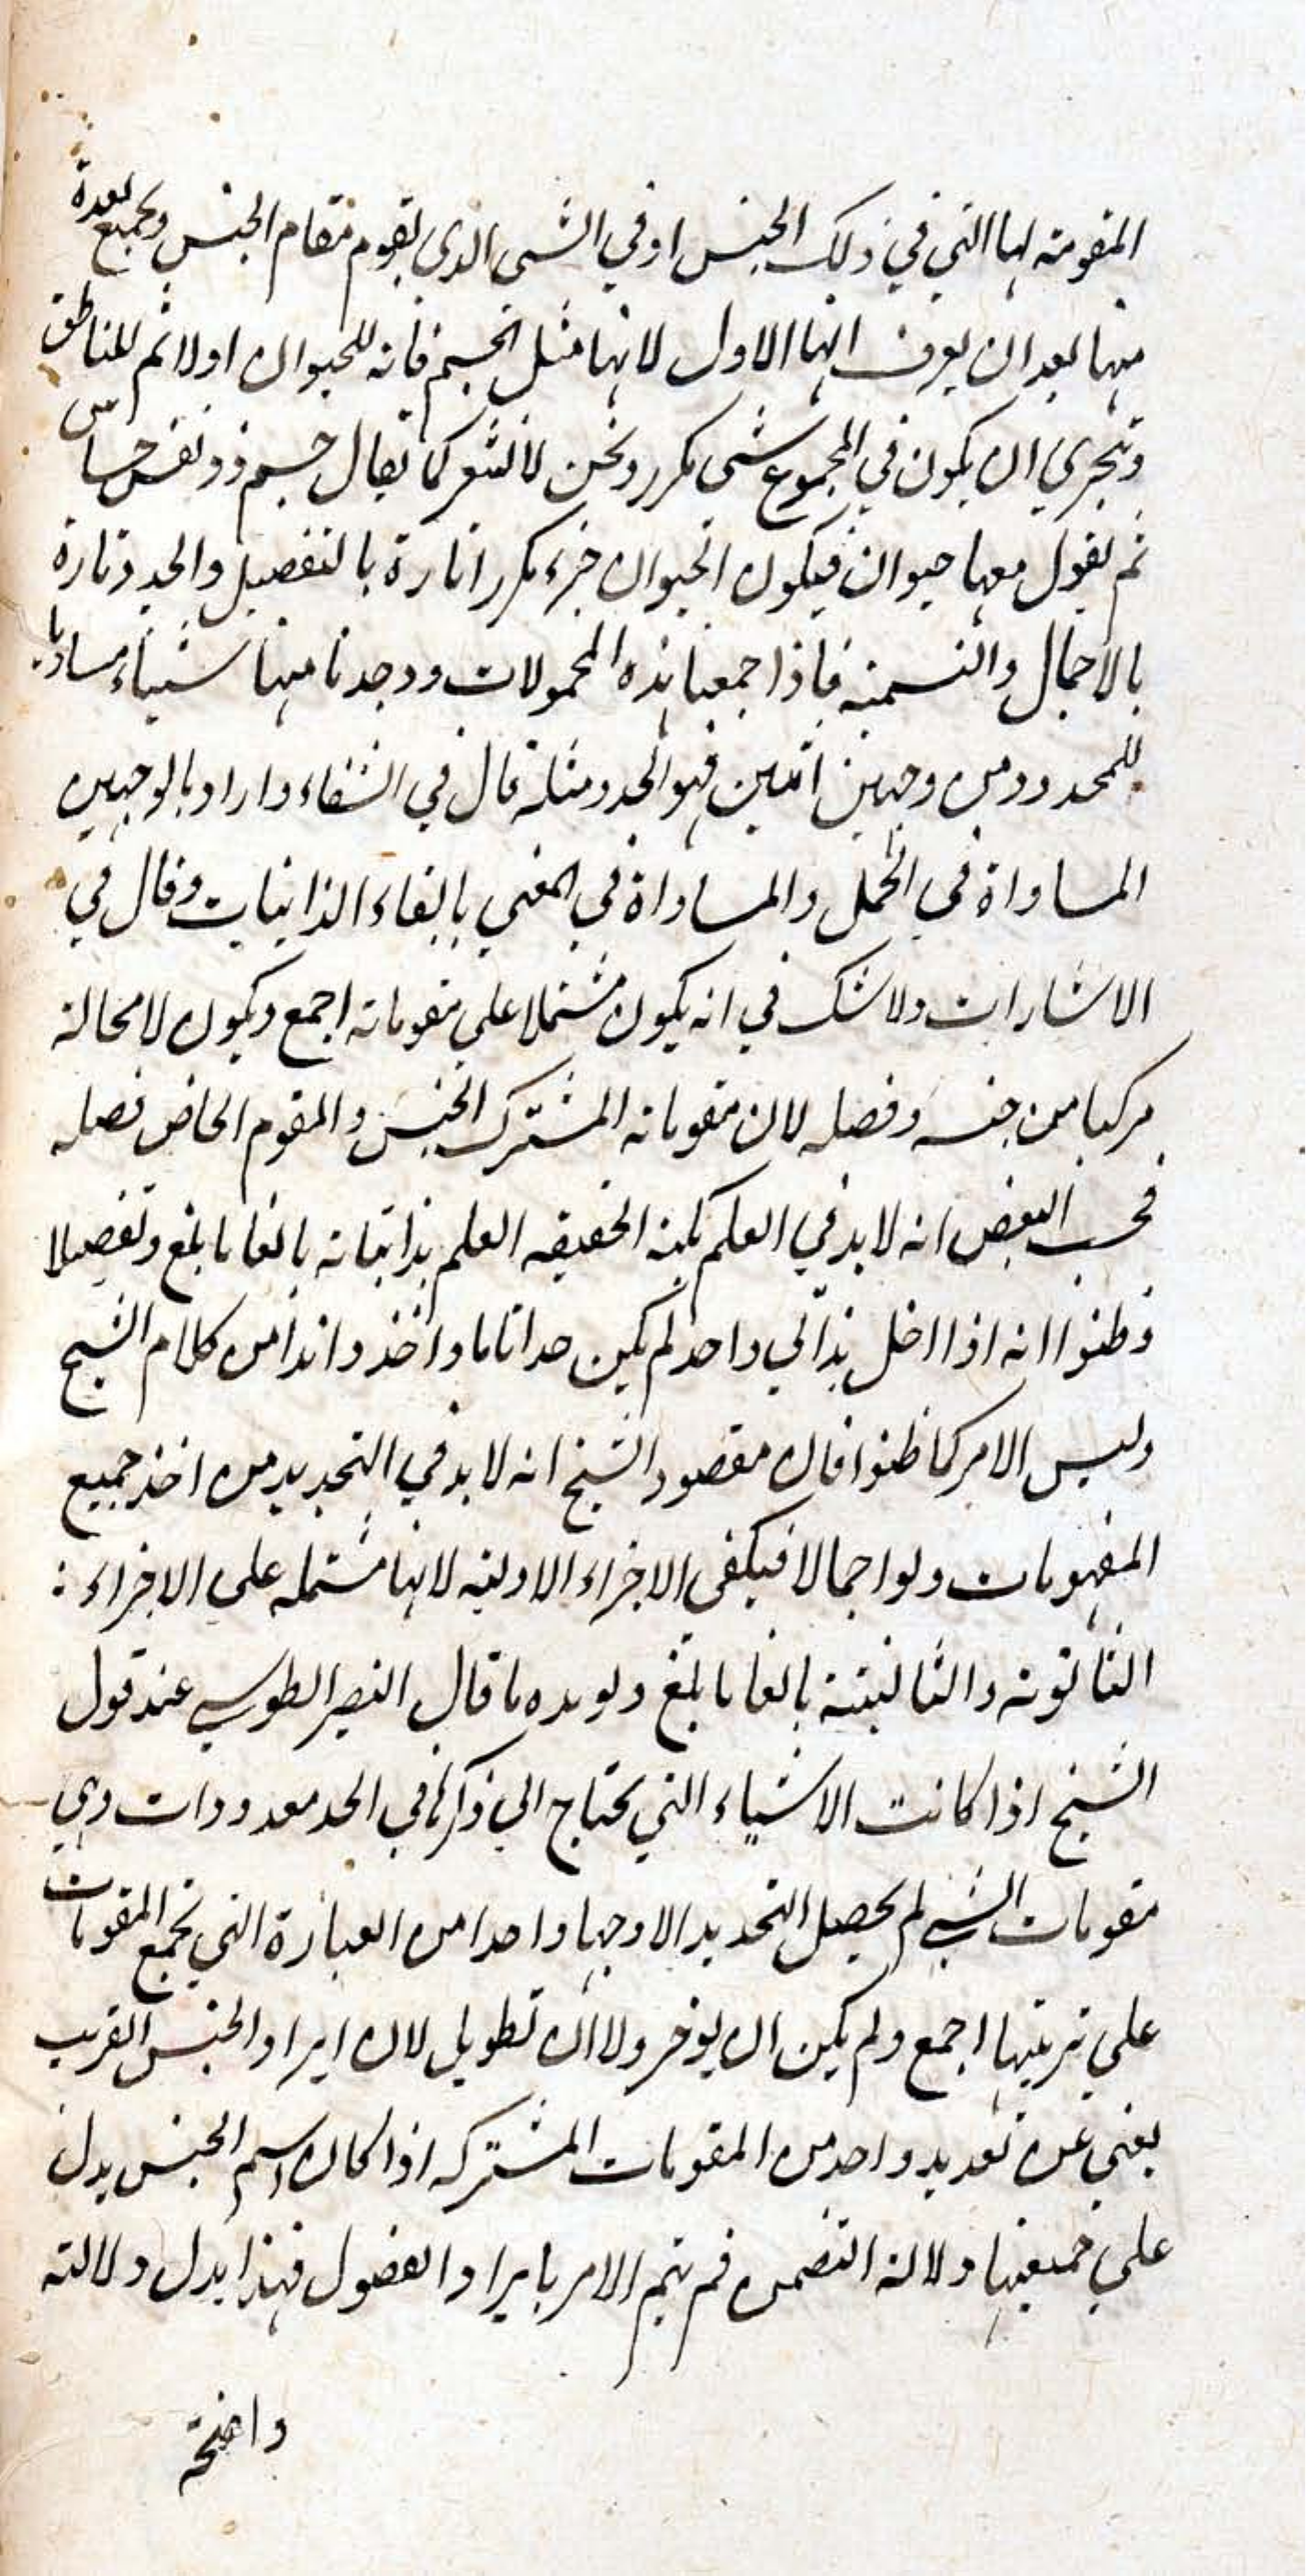 المقومة لها التي في ذلك الجنس او في الشى الذى يقوم مقام الجنس وتجمع لعدة
منها بعد ان يعرف ايها الاول لانها مثل الجسم فانه للحيوان اولا ثم للناطق
وتجري ان يكون في المجموع شى مكرر ونحن لا نشعر كما يقال جسم ذو نفس حساس
ثم يقول معها حيوان فيكون الحيوان جزء مكررا تارة بالتفصيل والحد وتارة
بالاجمال والتسمية فاذا جمعنا هذه المحمولات ووجدنا منها شيئاء مساويا
للمحدود من وجهين اثنين فهو الحد ومثله قال في الشفاء واراد بالوجهين
المساواة في الحمل والمساواة في المعني بايفاء الذاتيات وقال في
الاشارات ولا شك في انه يكون مشتملا علي مقوماته اجمع ويكون لا محالة
مركبا من جنسه وفصله لان مقوماته المشترك الجنس والمقوم الخاص فصله
فحسب البعض انه لا بد في العلم بكنه الحقيقه العلم بذاتياته بالغا ما بلغ وتفصيلا
وظنوا انه اذا اخل بذاتي واحد لم يكن حدا تاما واخذوا هذا من كلام الشيخ
وليس الامر كما ظنوا فان مقصود الشيخ انه لا بد في التحديد من اخذ جميع
المفهومات ولو اجمالا فيكفى الاجزاء الاولية لانها مشتمله علي الاجزاء :
الثانوية والثالثية بالغا ما بلغ ويويده ما قال النصير الطوسي عند قول
الشيخ اذا كانت الاشياء التي يحتاج الي ذكرها في الحد معدودات وهي
مقومات الشي لم يحصل التحديد الا وجها واحدا من العبارة التي تجمع المقومات
علي ترتيبها اجمع ولم يكن ان يوخر ولا ان تطويل لان ايراد الجنس القريب
يغني عن تعديد واحد من المقومات المشتركه اذا كان اسم الجنس يدل
علي جميعها دلالة التضمن ثم يتم الامر بايراد الفصول فهذا يدل دلالته
واضحة